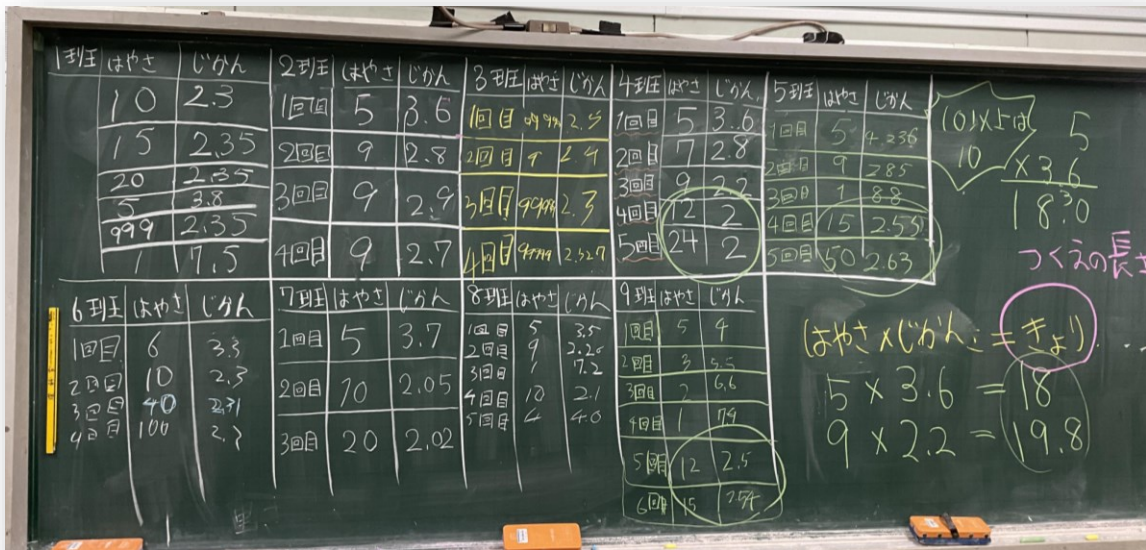 1班 はやさ じかん
10 2.3
15 2.35
20 2.35
5 3.8
999 2.35
1 7.5
2班 はやさ じかん
1回目 5 3.6
2回目 9 2.8
3回目 9 2.9
4回目 9 2.7
3班 はやさ じかん
1回目 2.5
2回目 9 2.4
3回目 2.3
4回目 2.527
4班 はやさ じかん
1回目 5 3.6
2回目 7 2.8
3回目 9 2.2
4回目 12 2
5回目 24 2
5班 はやさ じかん
1回目 5 4.236
2回目 9 2.85
3回目 1 8.8
4回目 15 2.55
5回目 50 2.63
10以上は
10
5
×3.6
18.0
つくえの長さ
6班 はやさ じかん
1回目 6 3.3
2回目 10 2.3
3回目 40 2.31
4回目 100
7班 はやさ じかん
1回目 5 3.7
2回目 10 2.05
3回目 20 2.02
8班 はやさ じかん
1回目 5 3.5
2回目 9
3回目 1 7.2
4回目 10 2.1
5回目 4 4.0
9班 はやさ じかん
1回目 5 4
2回目 3 5.5
3回目 2 6.6
4回目 1
5回目 12 2.5
6回目 15 2.54
はやさ×じかん=きょり
5×3.6=18
9×2.2=19.8